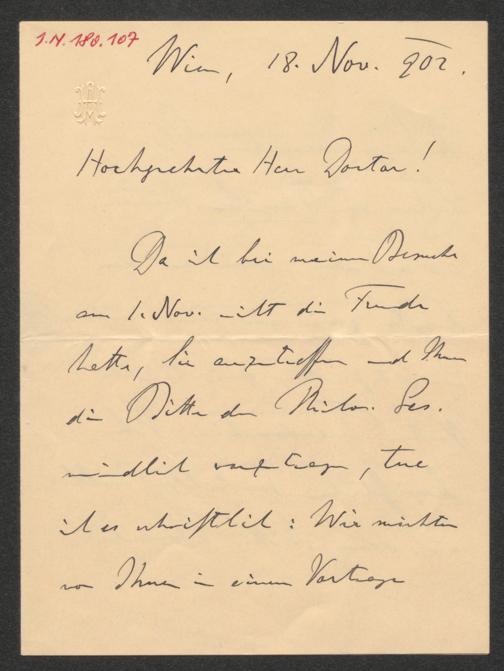 I.N. 180.107
Wien, 18. Nov. 902.
Hochgeehrter Herr Doctor!
Da ich bei meinem Besuche
am 1. Nov. nicht die Freude
hatte, Sie anzutreffen und Ihnen
die Bitte der Philos. Ges.
mündlich vorzutragen, tue
ich es schriftlich: Wir möchten
von Ihnen in einem Vortrage